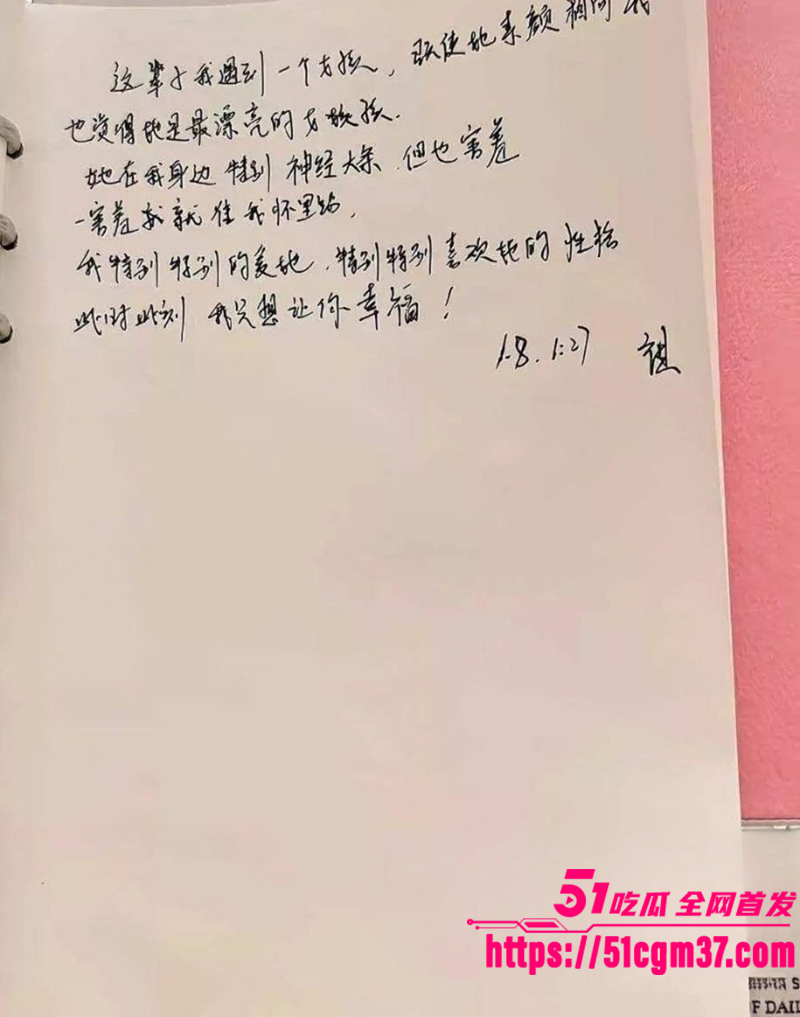 这辈子我遇到一个女孩，即使她素颜相向我
也觉得她是最漂亮的女孩.
她在我身边 特别 神经大条 但也害羞
一害羞 就往我怀里钻.
我特别 特别的爱她. 特别特别喜欢她的性格
此时此刻 我只想让你幸福！
1.8. 1:27
51吃瓜 全网首发
https://51cgm37.com
F DAIL